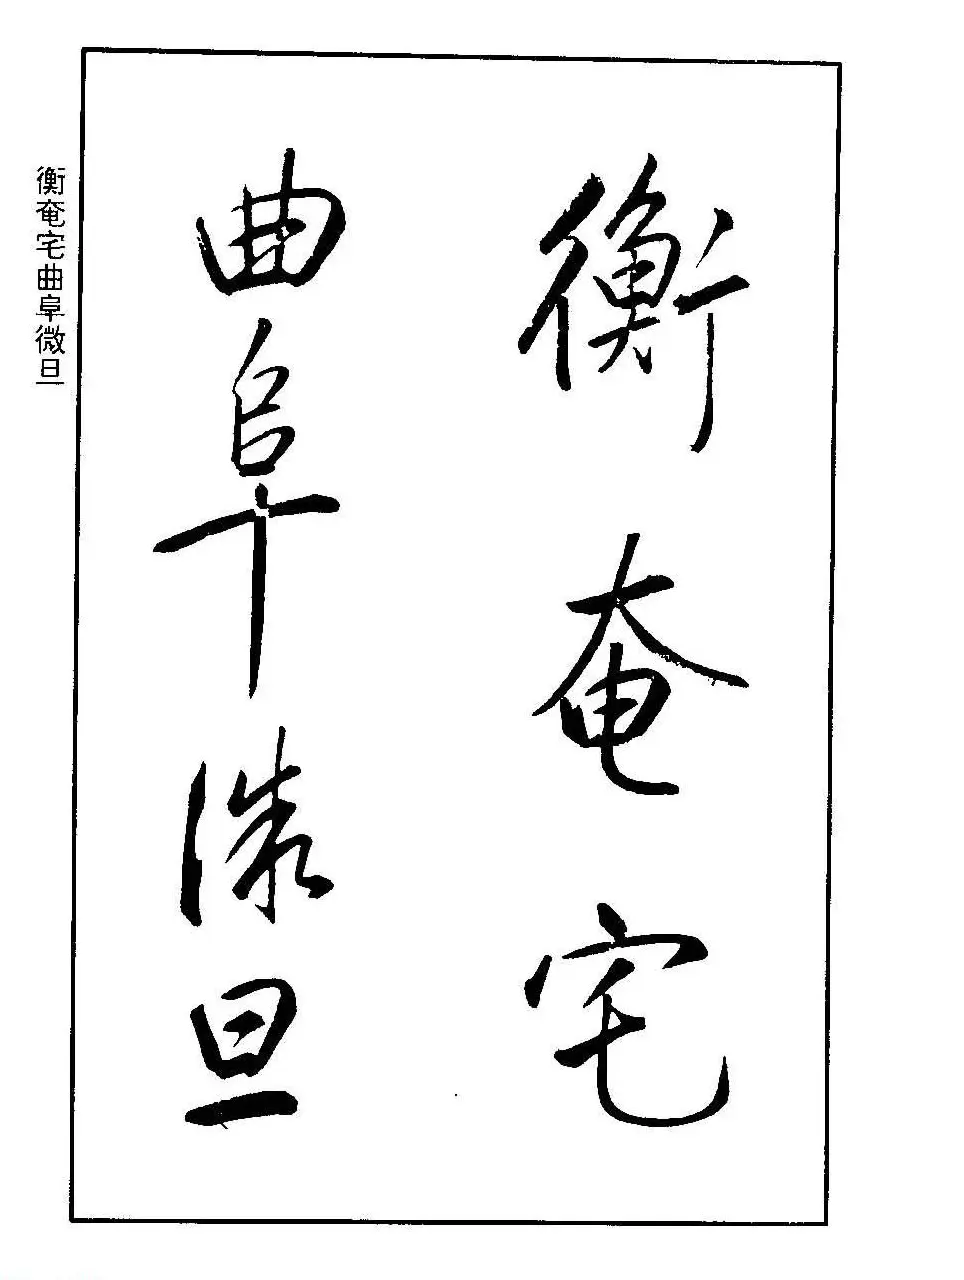 衡奄宅
曲阜微旦
衡奄宅曲阜微旦